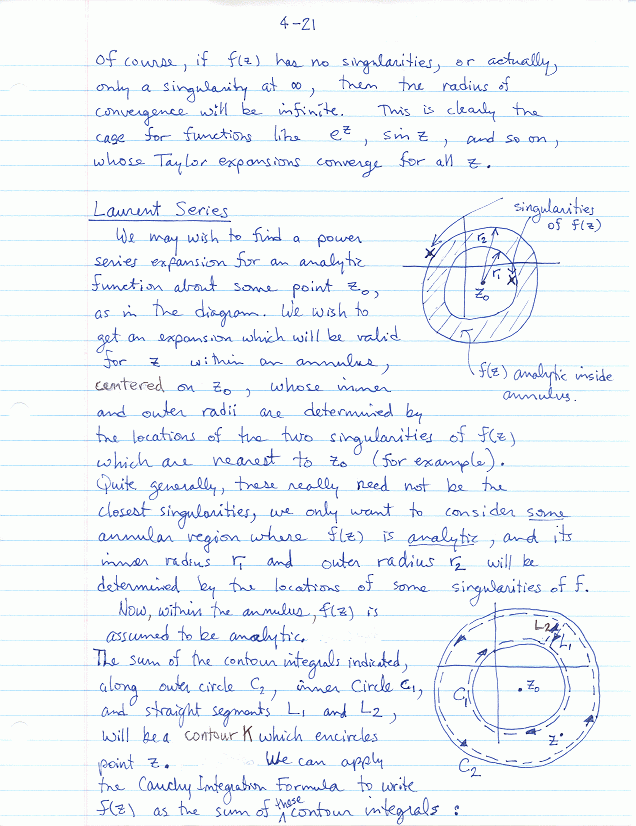 4-21
Of course, if f(z) has no singularities, or actually,
only a singularity at ∞, then the radius of
convergence will be infinite. This is clearly the
case for functions like e^z, sin z, and so on,
whose Taylor expansions converge for all z.
Laurent Series
We may wish to find a power
series expansion for an analytic
function about some point z₀,
as in the diagram. We wish to
get an expansion which will be valid
for z within an annulus,
centered on z₀, whose inner
and outer radii are determined by
the locations of the two singularities of f(z)
which are nearest to z₀ (for example).
singularities
of f(z)
r₂
r₁
x
x
z₀
f(z) analytic inside
annulus.
Quite generally, these really need not be the
closest singularities, we only want to consider some
annular region where f(z) is analytic, and its
inner radius r₁ and outer radius r₂ will be
determined by the locations of some singularities of f.
Now, within the annulus, f(z) is
assumed to be analytic.
The sum of the contour integrals indicated,
along outer circle C₂, inner Circle C₁,
and straight segments L₁ and L₂,
will be a contour K which encircles
point z. We can apply
the Cauchy Integration Formula to write
f(z) as the sum of these contour integrals:
L₂
L₁
C₁
z₀
z
C₂